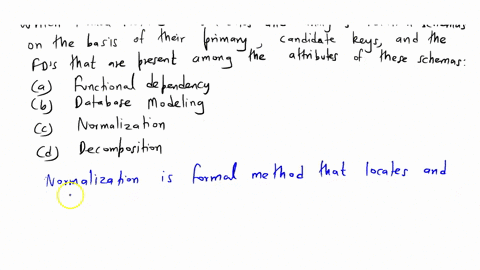 on the basis of their primary, candidate keys, and the
FD's that are present among the attributes of these schemas:
(a) Functional dependency
(b) Database Modeling
(c) Normalization
(d) Decomposition
Normalization is formal method that locates and